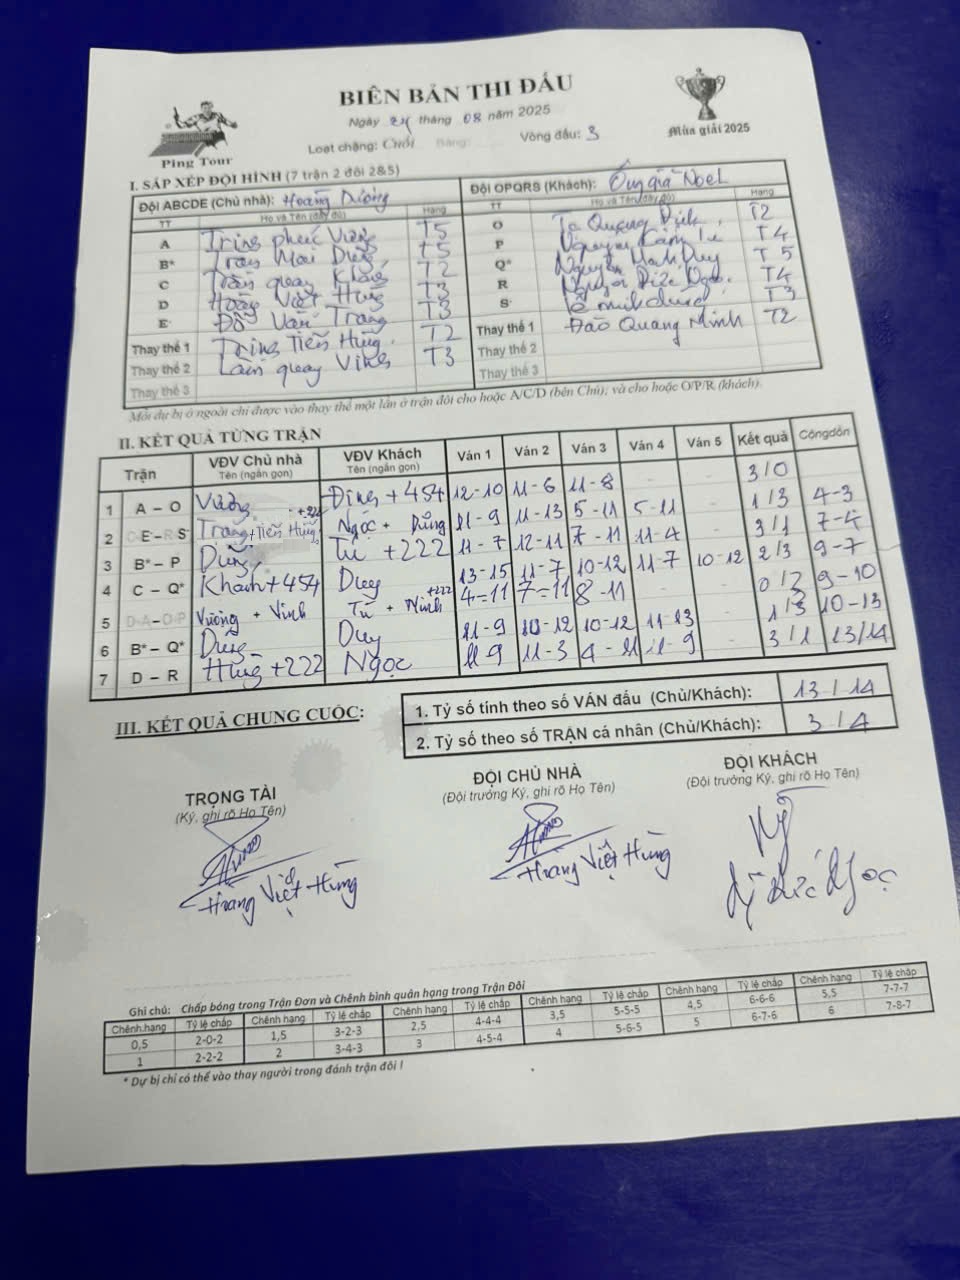 BIÊN BẢN THI ĐẤU
Ngày 24 tháng 08 năm 2025
Loạt chặng: Cuối Bảng: Vòng đấu: 3
Ping Tour
Mùa giải 2025
I. SẮP XẾP ĐỘI HÌNH (7 trận 2 đôi 2&5)
Đội ABCDE (Chủ nhà): Hoàng Dương
TT Họ và Tên (đầy đủ) Hạng
A Trịnh phúc Vượng T5
B* Trần Mai Dũng T5
C Trần quang Khánh T2
D Hoàng Việt Hùng T3
E Đỗ Văn Trang T3
Thay thế 1 Trịnh Tiến Hùng T2
Thay thế 2 Lâm quang Vinh T3
Thay thế 3
Đội OPQRS (Khách): Ông già Noel
TT Họ và Tên (đầy đủ) Hạng
O Tạ Quang Định T2
P Nguyễn Tú T4
Q* Nguyễn Mạnh Duy T5
R Đức Ngọc T4
S Lê minh dũng T3
Thay thế 1 Đào Quang Minh T2
Thay thế 2
Thay thế 3
Mỗi dự bị ở ngoài chỉ được vào thay thế một lần ở trận đôi cho hoặc A/C/D (bên Chủ); và cho hoặc O/P/R (khách).
II. KẾT QUẢ TỪNG TRẬN
Trận VĐV Chủ nhà Tên (ngắn gọn) VĐV Khách Tên (ngắn gọn) Ván 1 Ván 2 Ván 3 Ván 4 Ván 5 Kết quả Cộng dồn
1 A – O Vượng Định + 454 12-10 11-6 11-8 - - 3/0
2 E – S Trang + Tiến Hùng +222 Ngọc + Dũng 11-9 11-13 5-11 5-11 - 1/3 4-3
3 B* – P Dũng Tú +222 11-7 12-11 7-11 11-4 - 3/1 7-4
4 C – Q* Khánh +454 Duy 13-15 11-7 10-12 11-7 10-12 2/3 9-7
5 D-A – O-P Vượng + Vinh Tú + Minh +222 4-11 7-11 8-11 0/3 9-10
6 B* – Q* Dũng Duy 11-9 10-12 10-12 11-13 - 1/3 10-13
7 D – R Hùng +222 Ngọc 11-9 11-3 4-11 11-9 - 3/1 13/14
III. KẾT QUẢ CHUNG CUỘC:
1. Tỷ số tính theo số VÁN đấu (Chủ/Khách): 13/14
2. Tỷ số theo số TRẬN cá nhân (Chủ/Khách): 3/4
TRỌNG TÀI
(Ký, ghi rõ Họ Tên)
Hoàng Việt Hùng
ĐỘI CHỦ NHÀ
(Đội trưởng Ký, ghi rõ Họ Tên)
Hoàng Việt Hùng
ĐỘI KHÁCH
(Đội trưởng Ký, ghi rõ Họ Tên)
Đức Ngọc
Ghi chú: Chấp bóng trong Trận Đơn và Chênh bình quân hạng trong Trận Đôi
Chênh.hạng Tỷ lệ chấp Chênh hạng Tỷ lệ chấp Chênh hạng Tỷ lệ chấp Chênh hạng Tỷ lệ chấp Chênh hạng Tỷ lệ chấp Chênh hạng Tỷ lệ chấp
0,5 2-0-2 1,5 3-2-3 2,5 4-4-4 3,5 5-5-5 4,5 6-6-6 5,5 7-7-7
1 2-2-2 2 3-4-3 3 4-5-4 4 5-6-5 5 6-7-6 6 7-8-7
* Dự bị chỉ có thể vào thay người trong đánh trận đôi !